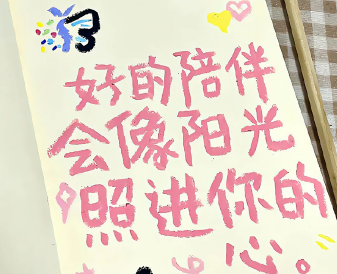 好的陪伴
会像阳光
照进你的
心